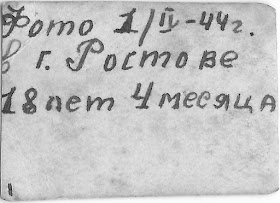 Фото 1/IV-44г.
в г. Ростове
18 лет 4 месяца